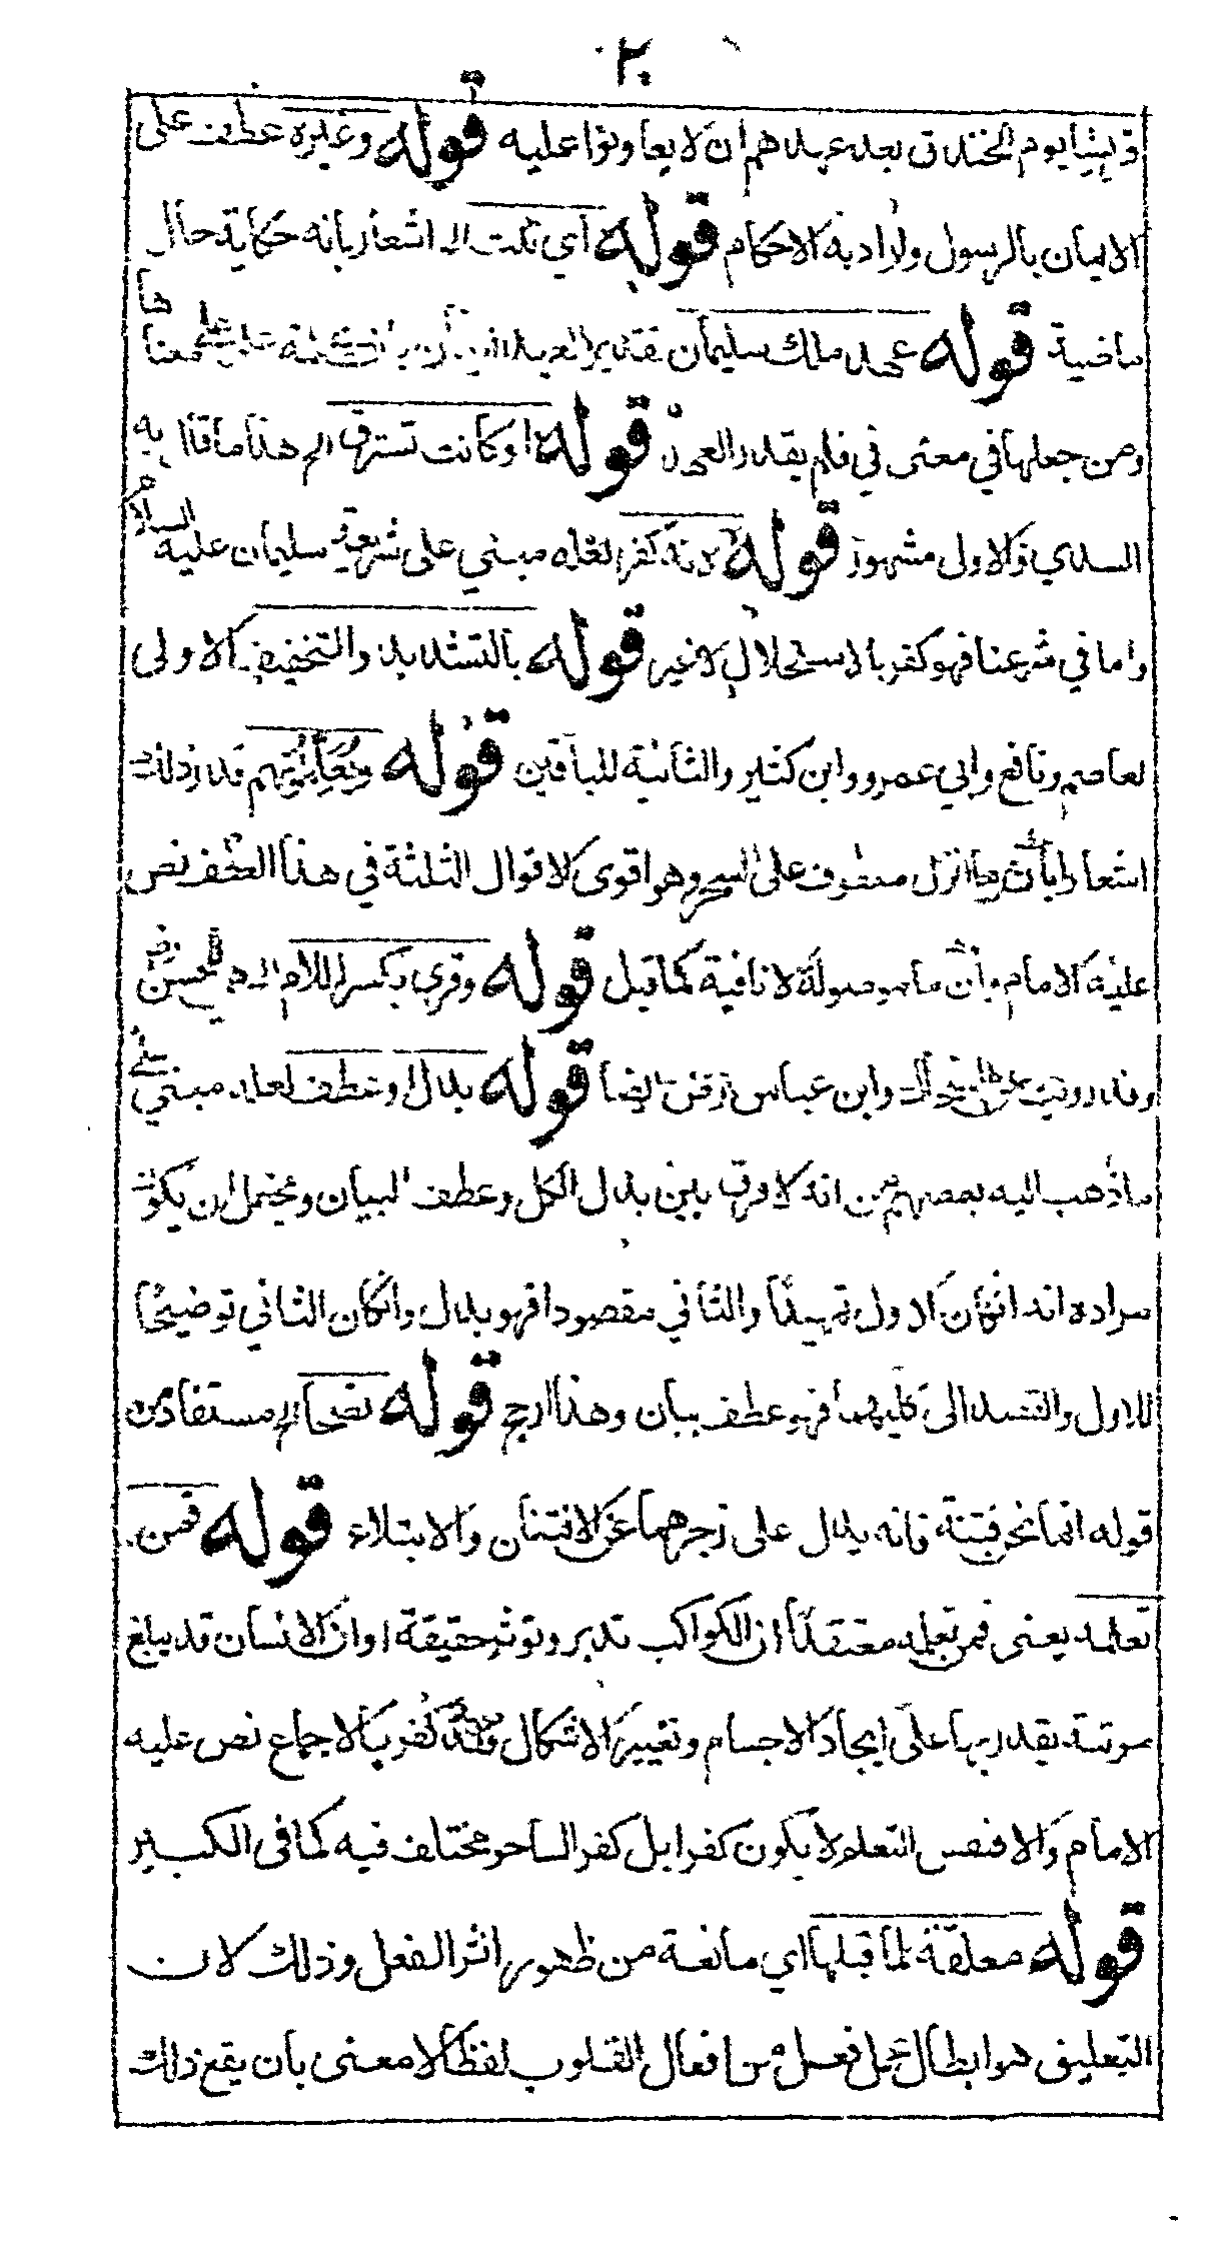 ٢٠
قريشا يوم الخندق بعد عهدهم ان لا يعاونوا عليه قوله وغيره عطف على
الايمان بالرسول واراد به الاحكام قوله اي تلت الـ اشعار بانه حكاية حال
ماضية قوله عهد ملك سليمان تقدير العهد على معناها
ومن جعلها في معنى في فلم يقدر العهد قوله او كانت تسترق الم هذا ما قاله
السدي والاول مشهور قوله لانه كفر لعله مبني على شريعة سليمان عليه السلام
واما في شرعنا فهو كفر بالاستحلال لا غير قوله بالتشديد والتخفيف الاولى
لعاصم ونافع وابي عمرو وابن كثير والثانية للباقين قوله ويعلمونهم قدر ذلك
اشعارا بان وما انزل معطوف على السحر وهو اقوى الاقوال الثلثة في هذا نص
عليه الامام وبان ما موصولة لا نافية كما قيل قوله وقري بكسر اللام الـ هي للحسن
وقد رويت عن الضحاك وابن عباس رض ايضا قوله بدل او عطف لعله مبني على
ما ذهب اليه بعضهم من انه لا فرق بين بدل الكل وعطف البيان ويحتمل ان يكون
مراده انه ان كان الاول تمهيدا والثاني مقصودا فهو بدل وان كان الثاني توضيحا
للاول والقصد الى كليهما فهو عطف بيان وهذا ارجح قوله نصحا الـ مستفاد من
قوله انما نحن فتنة فانه يدل على زجرهما عن الافتنان والابتلاء قوله فمن
تعلمه يعنى فمن تعلمه معتقدا ان الكواكب تدبر وتوثر حقيقة او ان الانسان قد يبلغ
مرتبة يقدر بها على ايجاد الاجسام وتغيير الاشكال كفر بالاجماع نص عليه
الامام والا فنفس التعلم لا يكون كفرا بل كفر الساحر مختلف فيه كما فى الكبير
قوله معلقة لما قبلها اي مانعة من ظهور اثر الفعل وذلك لان
التعليق هو ابطال عمل فعل من افعال القلوب لفظا لا معنى بان يقع ذلك